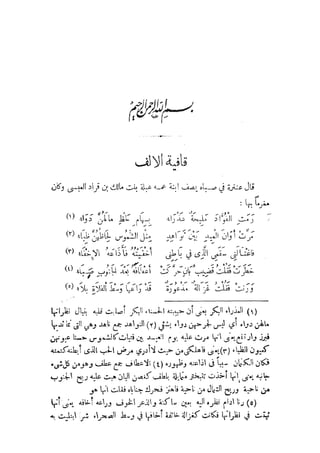 بسم الله الرحمن الرحيم
قافية الالف
قال عنترة في صباه يصف ابنة عمه عبلة بنت مالك بن قراد العبسى وكان
مغرماً بها :
رَمَتِ الْفُؤَادَ مَلِيحَةٌ عَذْرَاءُ بِسِهَامِ لَحْظٍ مَا لَهُنَّ دَوَاءُ (١)
مَرَّتْ أَوَانَ الْعِيدِ بَيْنَ نَوَاهِدٍ مِثْلِ الشُّمُوسِ لِحَاظُهُنَّ ظِبَاءُ (٢)
فَاغْتَالَنِي سَقَمِي الَّذِي فِي بَاطِنِي أَخْفَيْتُهُ فَأَذَاعَهُ الْإِخْفَاءُ (٣)
خَطَرَتْ فَقُلْتُ قَضِيبُ بَانٍ حَرَّكَتْ أَعْطَافَهُ بَعْدَ الْجَنُوبِ صَبَاءُ (٤)
وَرَنَتْ فَقُلْتُ غَزَالَةٌ مَذْعُورَةٌ قَدْ رَاعَهَا وَسْطَ الْفَلَاةِ بَلَاءُ (٥)
(١) العذراء البكر يعنى أن حبيبته الحسناء البكر أصابت قلبه بنبال نظراتها
مالهن دواء أي ليس لجرحهن دواء يشفي (٢) النواهد جمع ناهد وهى التى كعب ثديها
فبرز وارتفع يعنى انها مرت عليه يوم العيد بين فتيات كالشموس حسنا عيونهن
كعيون الظباء (٣) يعنى فاهلكنى من حيث لا أدري مرض الحب الذى أبطنه كتمته
فكان كتمانه سبباً في اذاعته وظهوره (٤) الاعطاف جمع عطف وهو من كل شىء
جانبه يعنى إنها أخذت تتبختر متمايلة بلطف كغصن البان هبت عليه ريح الجنوب
من ناحية وريح الشمال من ناحية فاهتز فحرك جنباه فقلت انها هو
(٥) رنا ادام نظره اليه بعين ساكنة والذعر الخوف وراعه أخافه يعنى أنها
ثبتت في نظراتها فكانت كغزالة خائفة أخافها في وسط الصحراء شر ابتليت به